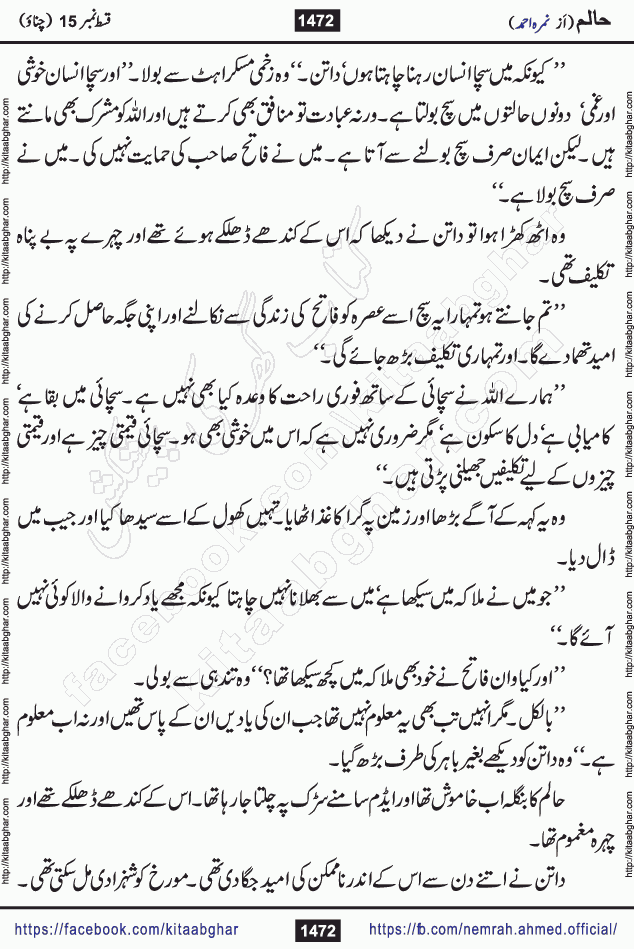 حالم (از نمرہ احمد) 1472 قسط نمبر 15 (چناؤ)
’’ کیونکہ میں سچا انسان رہنا چاہتا ہوں‘ داتن۔‘‘ وہ زخمی مسکراہٹ سے بولا۔ ’’اور سچا انسان خوشی
اور غمی‘ دونوں حالتوں میں سچ بولتا ہے۔ ورنہ عبادت تو منافق بھی کرتے ہیں اور اللہ کو مشرک بھی مانتے
ہیں۔ لیکن ایمان صرف سچ بولنے سے آتا ہے۔ میں نے فاتح صاحب کی حمایت نہیں کی۔ میں نے
صرف سچ بولا ہے۔‘‘
وہ اٹھ کھڑا ہوا تو داتن نے دیکھا کہ اس کے کندھے ڈھلکے ہوئے تھے اور چہرے پہ بے پناہ
تکلیف تھی۔
’’تم جانتے ہو تمہارا یہ سچ اسے عصرہ کو فاتح کی زندگی سے نکالنے اور اپنی جگہ حاصل کرنے کی
امید تھما دے گا۔ اور تمہاری تکلیف بڑھ جائے گی۔‘‘
’’ہمارے اللہ نے سچائی کے ساتھ فوری راحت کا وعدہ کیا بھی نہیں ہے۔ سچائی میں بقا ہے‘
کامیابی ہے‘ دل کا سکون ہے‘ مگر ضروری نہیں ہے کہ اس میں خوشی بھی ہو۔ سچائی قیمتی چیز ہے اور قیمتی
چیزوں کے لیے تکلیفیں جھیلنی پڑتی ہیں۔‘‘
وہ یہ کہہ کے آگے بڑھا اور زمین پہ گرا کاغذ اٹھایا۔ تہیں کھول کے اسے سیدھا کیا اور جیب میں
ڈال دیا۔
’’جو میں نے ملاکہ میں سیکھا ہے‘ میں سے بھلانا نہیں چاہتا کیونکہ مجھے یاد کروانے والا کوئی نہیں
آئے گا۔‘‘
’’اور کیا وان فاتح نے خود بھی ملاکہ میں کچھ سیکھا تھا؟‘‘ وہ تندہی سے بولی۔
’’بالکل۔ مگر انہیں تب بھی یہ معلوم نہیں تھا جب ان کی یادیں ان کے پاس تھیں اور نہ اب معلوم
ہے۔‘‘ وہ داتن کو دیکھے بغیر باہر کی طرف بڑھ گیا۔
حالم کا بنگلہ اب خاموش تھا اور ایڈم سامنے سڑک پہ چلتا جا رہا تھا۔ اس کے کندھے ڈھلکے تھے اور
چہرہ مغموم تھا۔
داتن نے اتنے دن سے اس کے اندر ناممکن کی امید جگا دی تھی۔ مورخ کو شہزادی مل سکتی تھی۔
https://facebook.com/kitaabghar 1472 https://fb.com/nemrah.ahmed.official/
http://kitaabghar.com
http://kitaabghar.com
facebook.com/kitaabghar
kitaabghar.com